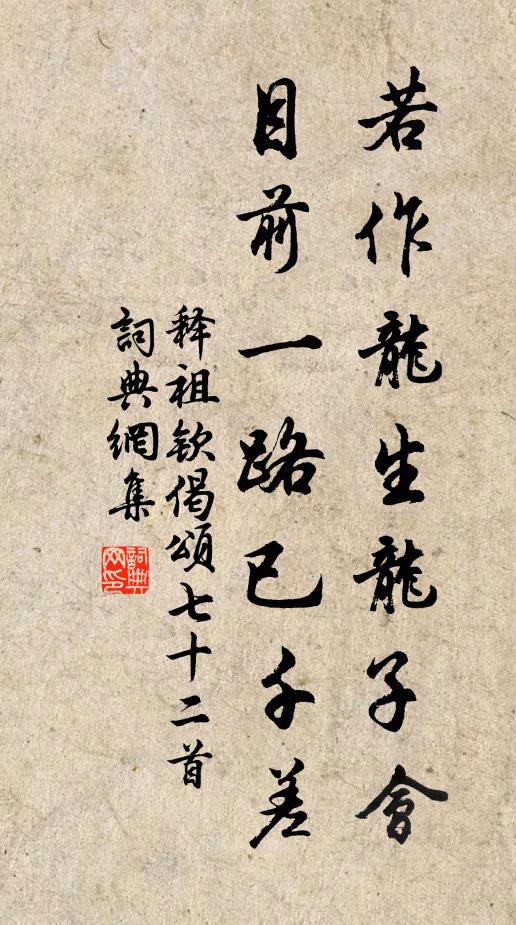 若作龍生龍子會
目前一路已千差
释祖钦偈頌七十二首
詞典網集
詞典
网印